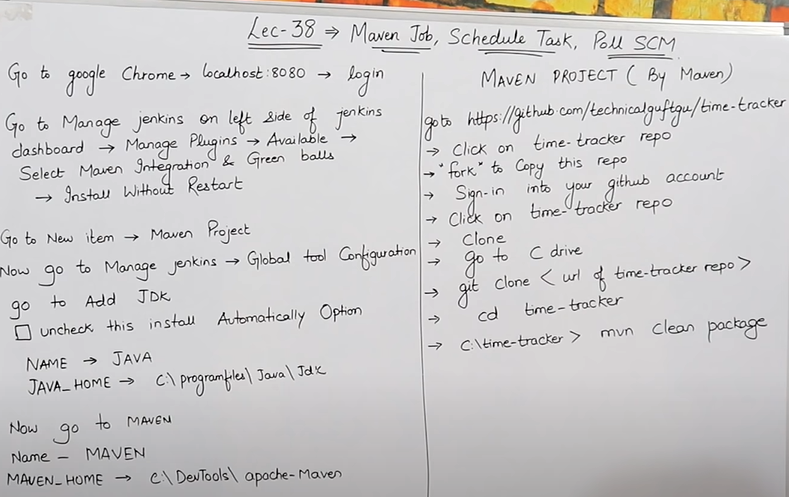 Lec-38 ⇒ Maven Job, Schedule Task, Poll SCM
Go to google Chrome → localhost:8080 → login
Go to Manage jenkins on left side of jenkins
dashboard → Manage Plugins → Available →
Select Maven Integration & Green balls
→ Install Without Restart
Go to New item → Maven Project
Now go to Manage jenkins → Global tool Configuration
go to Add JDK
☐ uncheck this install Automatically Option
NAME → JAVA
JAVA_HOME → C:\programfiles\Java\Jdk
Now go to MAVEN
Name – MAVEN
MAVEN_HOME → C:\DevTools\apache-Maven
MAVEN PROJECT ( By Maven)
goto https://github.com/technicalguftgu/time-tracker
→ Click on time-tracker repo
→ "fork" to Copy this repo
→ Sign-in into your github account
→ Click on time-tracker repo
→ Clone
→ go to C drive
→ git clone < url of time-tracker repo >
→ cd time-tracker
→ C:\time-tracker > mvn clean package